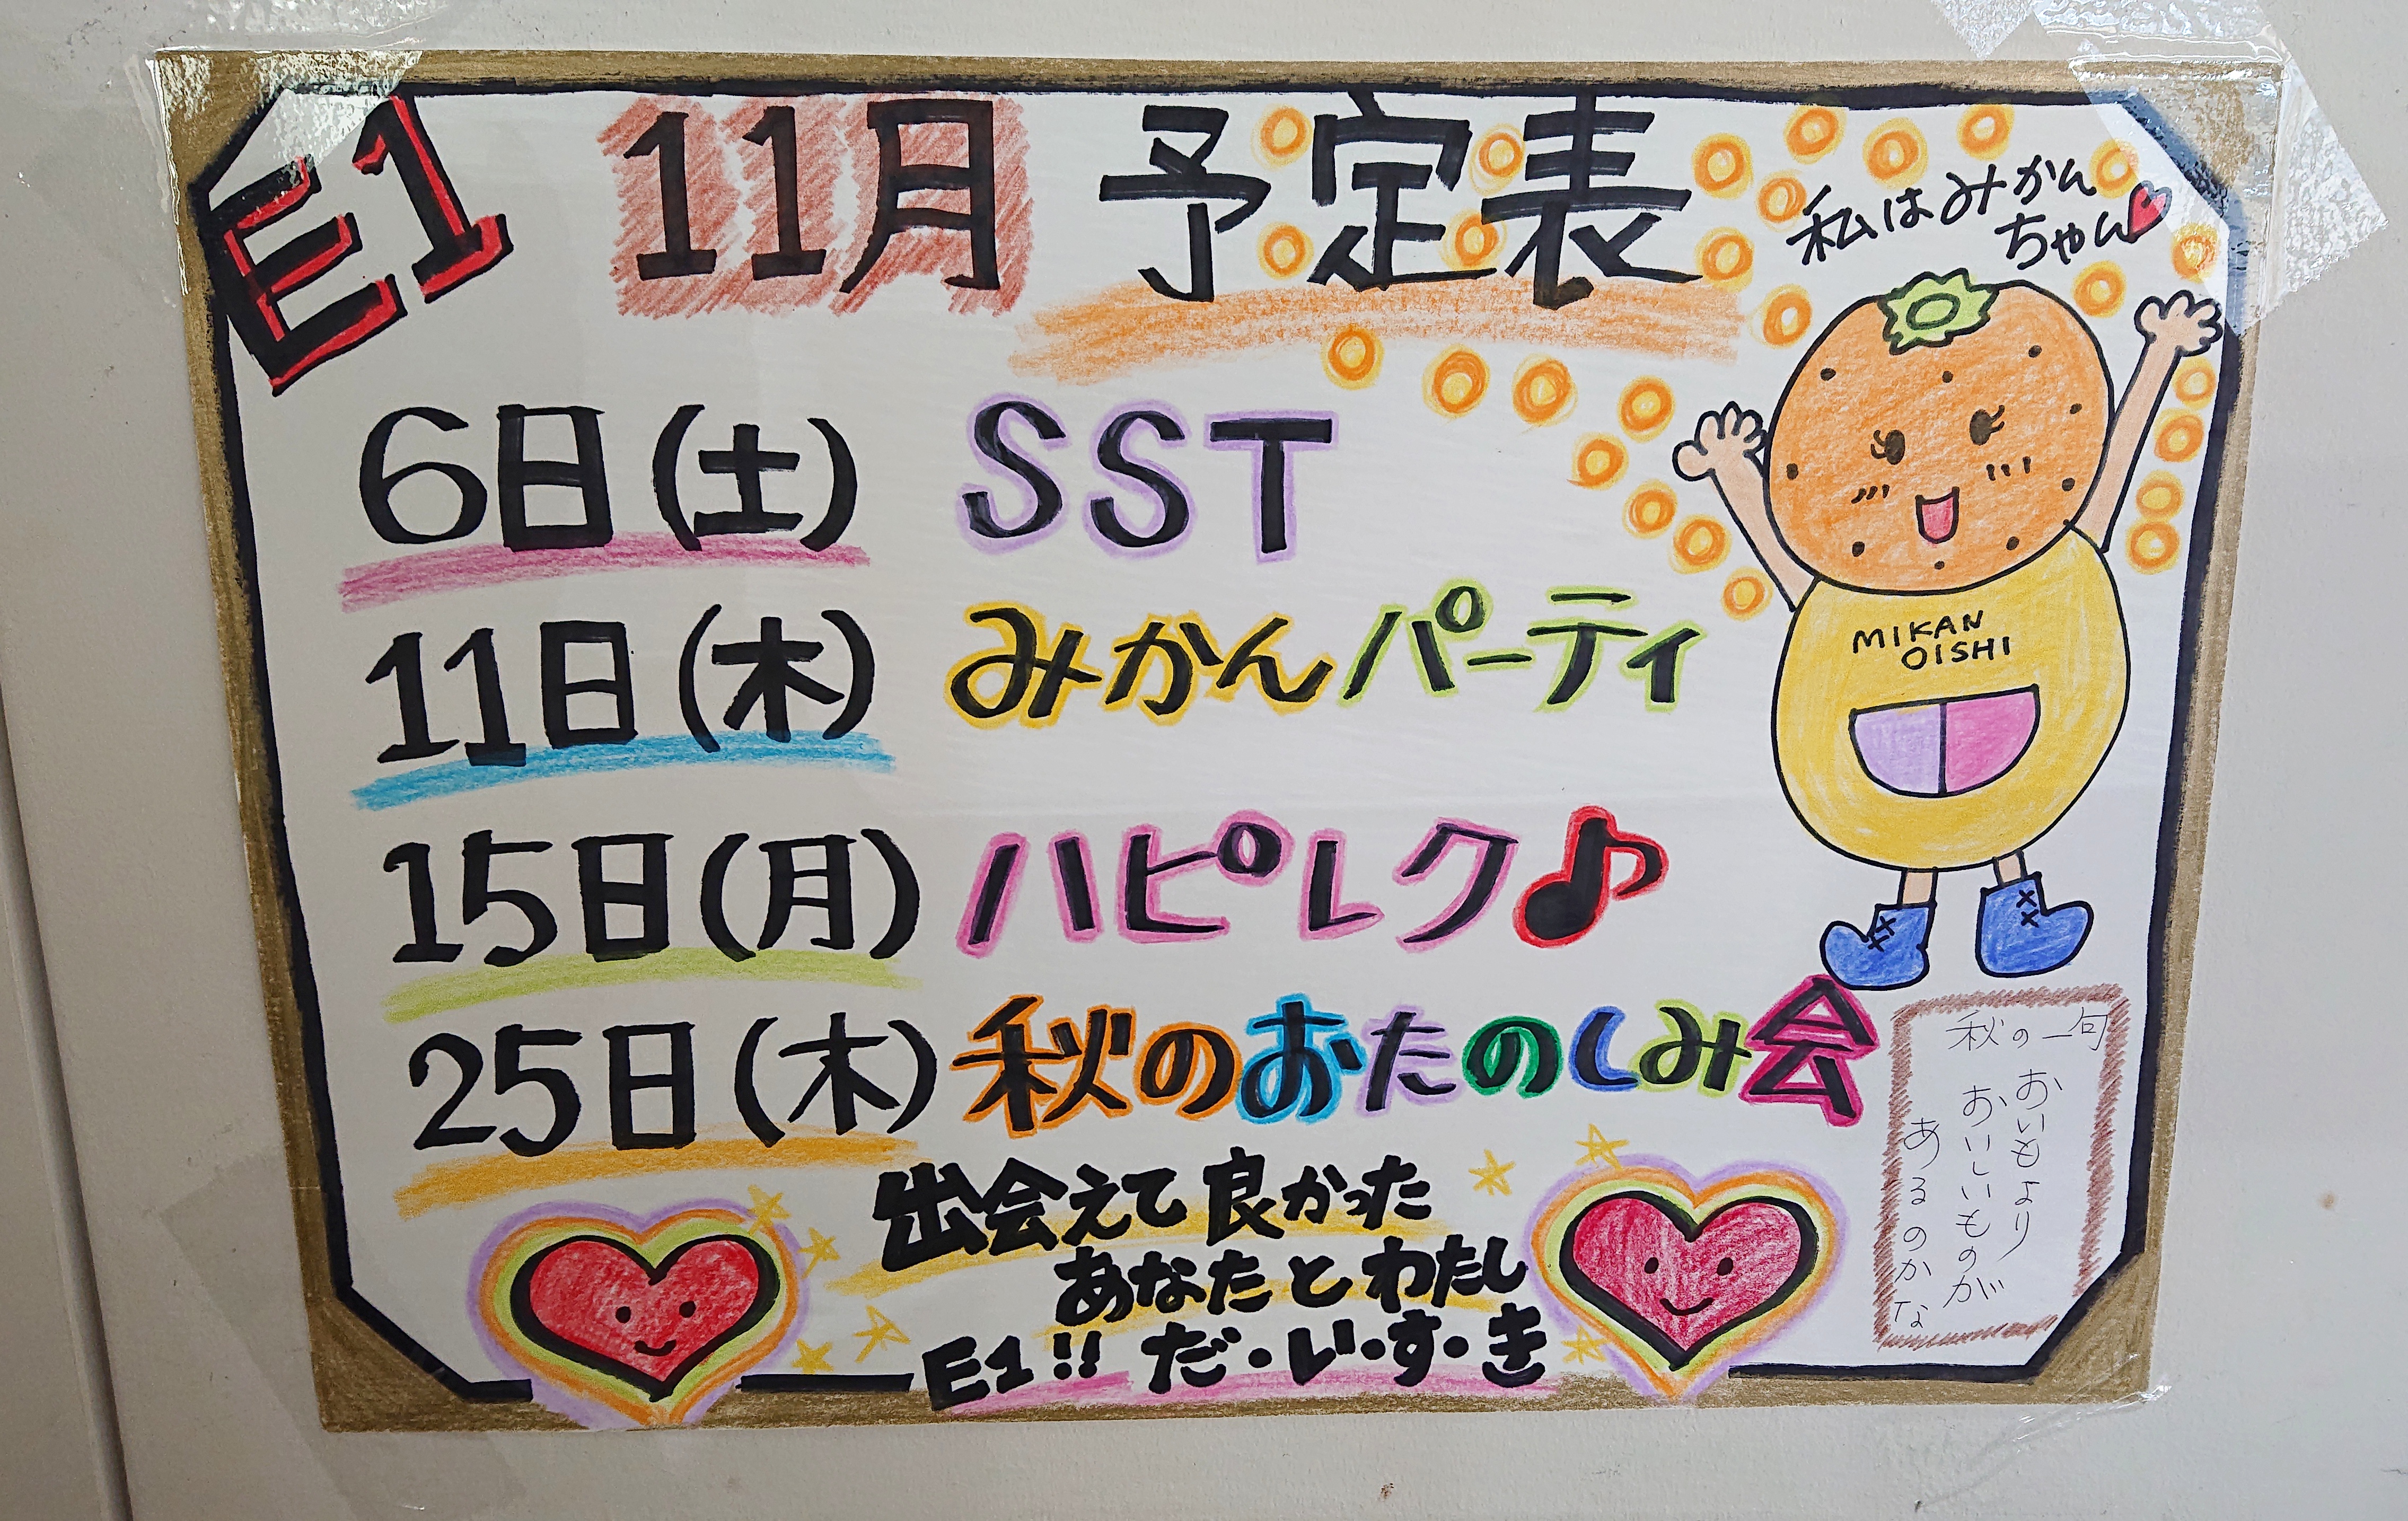 E1 11月 予定表
私はみかん
ちゃん
6日(土) SST
11日(木) みかんパーティ
MIKAN
OISHI
15日(月) ハピレク♪
25日(木) 秋のおたのしみ会
出会えて良かった
あなたとわたし
E1!! だ・い・す・き
秋の一句
おいもより
おいしいものが
あるのかな